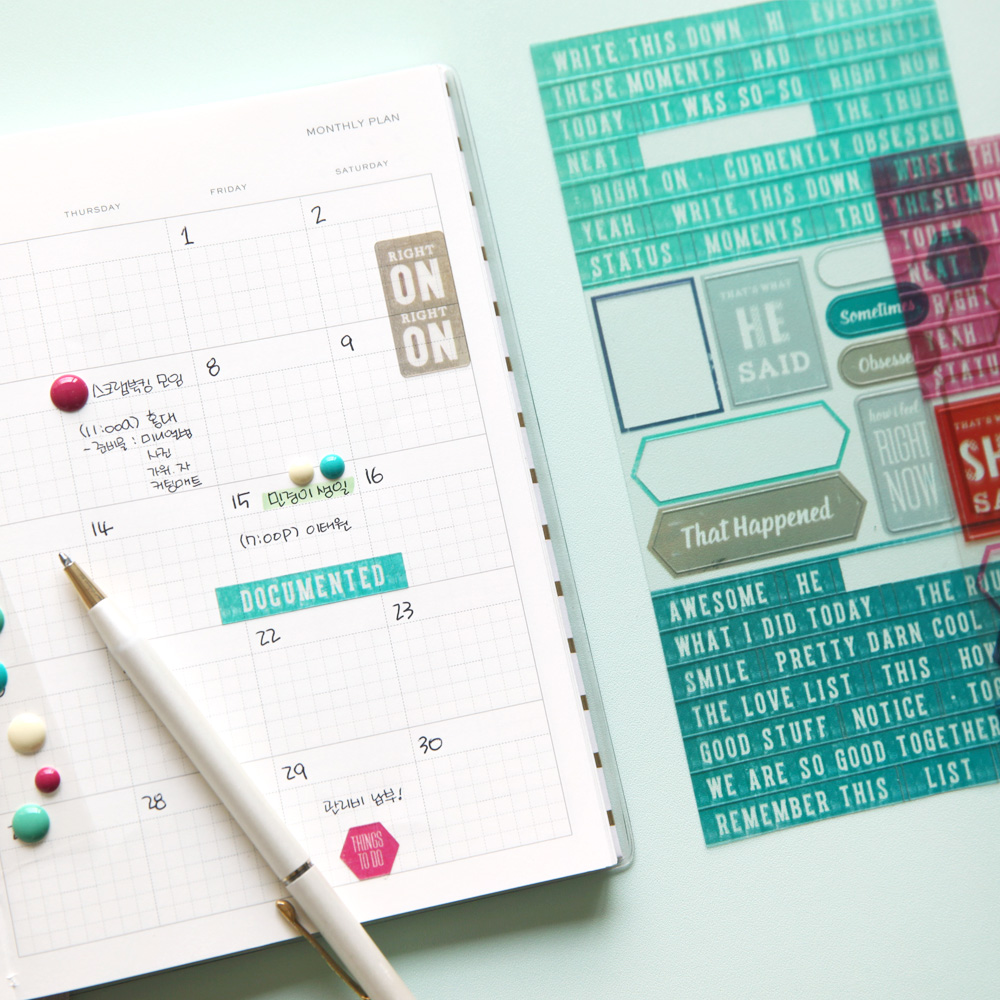 MONTHLY PLAN
THURSDAY
FRIDAY
SATURDAY
1
2
RIGHT
ON
RIGHT
ON
스크랩북킹 모임
(11:00a) 홍대
- 준비물 : 미니앨범
사진
가위. 자
커팅매트
8
9
14
15 민경이 생일
(7:00P) 이태원
16
DOCUMENTED
22
23
28
29
관리비 납부!
THINGS
TO DO
30
WRITE THIS DOWN HI EVERYDAY
THESE MOMENTS RAD CURRENTLY
TODAY IT WAS SO-SO RIGHT NOW
NEAT. THE TRUTH
· RIGHT ON · CURRENTLY OBSESSED
YEAH WRITE THIS DOWN
STATUS MOMENTS TRU
THAT'S WHAT
HE
SAID
Sometimes
Obsesse
how i feel
RIGHT
NOW
That Happened
AWESOME HE
WHAT I DID TODAY THE
SMILE PRETTY DARN COOL
THE LOVE LIST THIS HOW
GOOD STUFF NOTICE · TOG
WE ARE SO GOOD TOGETHER
REMEMBER THIS LIST
THESE MO
TODAY
NEAT.
RIGHT
YEAH
STATU
THAT'S W
SH
SA